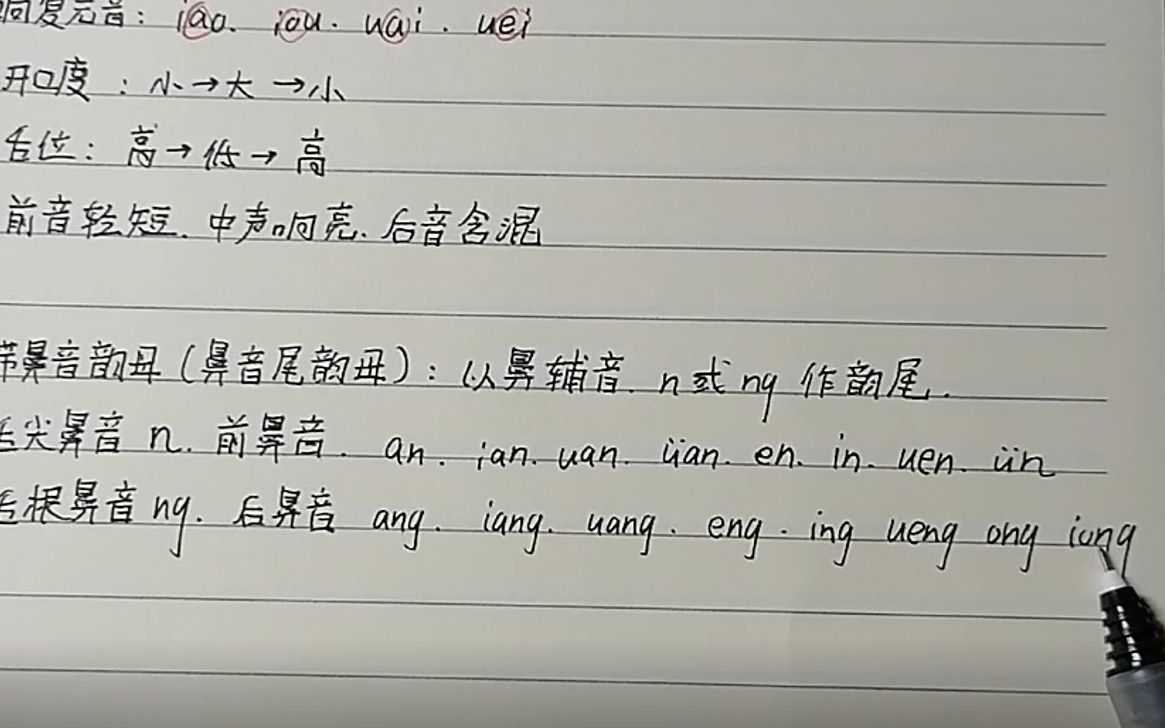 响复元音: iao. iou. uai. uei
开口度: 小→大→小
舌位: 高→低→高
前音轻短. 中声响亮. 后音含混
带鼻音韵母(鼻音尾韵母): 以鼻辅音. n或ng作韵尾.
舌尖鼻音 n. 前鼻音. an. ian. uan. üan. en. in. uen. ün
舌根鼻音 ng. 后鼻音 ang. iang. uang. eng. ing ueng ong iong